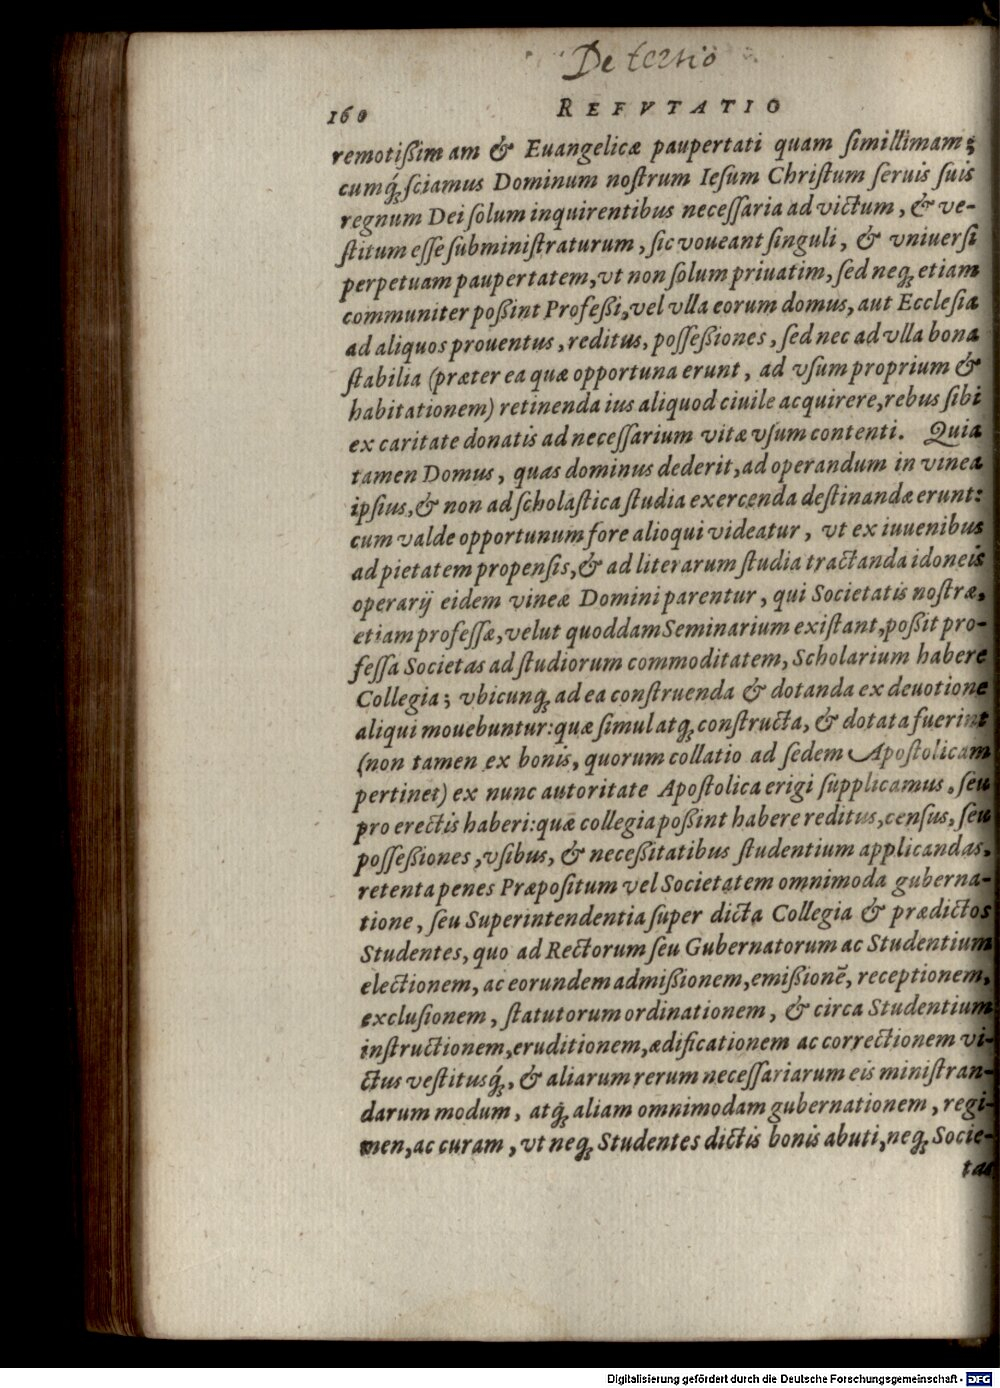 De tertio
160 REFVTATIO
remotißim am & Euangelicæ paupertati quam ſimillimam;
cumq́ꝫ ſciamus Dominum noſtrum Ieſum Chriſtum ſeruis ſuis
regnum Dei ſolum inquirentibus neceſſaria ad victum, & ve-
ſtitum eſſe ſubminiſtraturum, ſic voueant ſinguli, & vniuerſi
perpetuam paupertatem, vt non ſolum priuatim, ſed neqꝫ etiam
communiter poßint Profeßi, vel vlla eorum domus, aut Eccleſia
ad aliquos prouentus, reditus, poſſeßiones, ſed nec ad vlla bona
ſtabilia (præter ea quæ opportuna erunt, ad vſum proprium &
habitationem) retinenda ius aliquod ciuile acquirere, rebus ſibi
ex caritate donatis ad neceſſarium vitæ vſum contenti. Quia
tamen Domus, quas dominus dederit, ad operandum in vinea
ipſius, & non ad ſcholaſtica ſtudia exercenda deſtinandæ erunt:
cum valde opportunum fore alioqui videatur, vt ex iuuenibus
ad pietatem propenſis, & ad literarum ſtudia tractanda idoneis
operarij eidem vineæ Domini parentur, qui Societatis noſtræ,
etiam profeſſæ, velut quoddam Seminarium exiſtant, poßit pro-
feſſa Societas ad ſtudiorum commoditatem, Scholarium habere
Collegia; vbicunqꝫ ad ea conſtruenda & dotanda ex deuotione
aliqui mouebuntur: quæ ſimul atqꝫ conſtructa, & dotata fuerint
(non tamen ex bonis, quorum collatio ad ſedem Apoſtolicam
pertinet) ex nunc autoritate Apoſtolica erigi ſupplicamus, ſeu
pro erectis haberi: quæ collegia poßint habere reditus, cenſus, ſeu
poſſeßiones, vſibus, & neceßitatibus ſtudentium applicandas,
retenta penes Præpoſitum vel Societatem omnimoda guberna-
tione, ſeu Superintendentia ſuper dicta Collegia & prædictos
Studentes, quo ad Rectorum ſeu Gubernatorum ac Studentium
electionem, ac eorundem admißionem, emißionē, receptionem,
excluſionem, ſtatutorum ordinationem, & circa Studentium
inſtructionem, eruditionem, ædificationem ac correctionem vi-
ctus veſtitusq́ꝫ, & aliarum rerum neceſſariarum eis miniſtran-
darum modum, atq́ꝫ aliam omnimodam gubernationem, regi-
men, ac curam, vt neqꝫ Studentes dictis bonis abuti, neqꝫ Socie-
tas
Digitalisierung gefördert durch die Deutsche Forschungsgemeinschaft - DFG